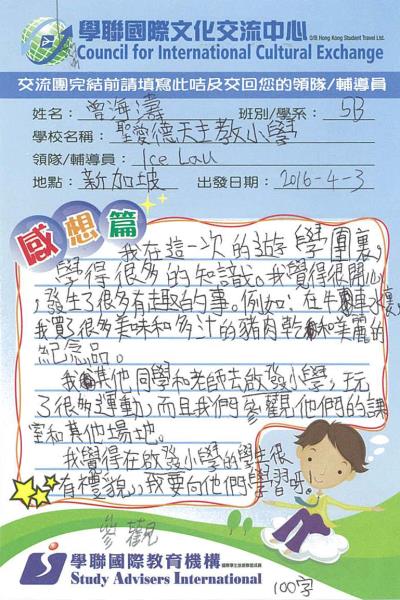 學聯國際文化交流中心
D/B Hong Kong Student Travel Ltd.
Council for International Cultural Exchange
交流團完結前請填寫此咭及交回您的領隊/輔導員
姓名：曾海濤 班別/學系：5B
學校名稱：聖愛德天主教小學
領隊/輔導員：Ice Lau
地點：新加坡 出發日期：2016-4-3
感想篇
我在這一次的遊學團裏，
學得很多的知識。我覺得很開心
，發生了很多有趣的事。例如：在牛車水裏，
我買了很多美味和多汁的豬肉乾和美麗的
紀念品。
我其他同學和老師去啟發小學，玩
了很多運動，而且我們參觀他們的課
室和其他場地。
我覺得在啟發小學的學生很
有禮貌，我要向他們學習呀。
參觀
學聯國際教育機構
Study Advisers International
100字